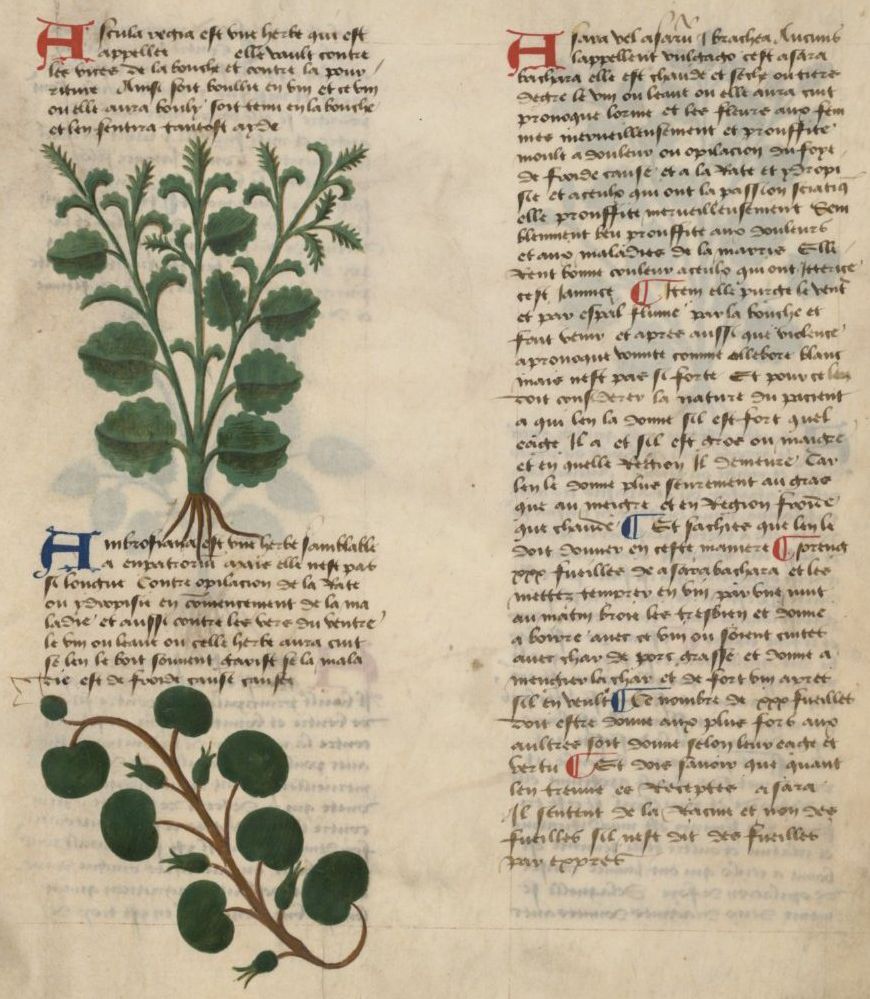 Ascula regia est vne herbe qui est
appellee elle vault contre
les vices de la bouche et contre la pour
riture Ainsi soit boullu en vin et ce vin
ou elle aura bouly soit tenu en la bouche
et len sentira tantost ayde
Ambrosiana est vne herbe samblable
a enpatorin mais elle nest pas
si longue Contre opilacion de la Rate
ou ydropisie en comencement de la ma
ladie et aussi contre les vers du ventre
le vin ou leaue ou celle herbe aura cuit
se len le boit souuent garist se la mala
die est de froide cause causee
Asara vel asaru I brachea Aucuns
lappellent vulgago cest asara
bachara elle est chaude et seche ou tiers
degre le vin ou leaue ou elle aura cuit
prouoque lorine et les fleurs aux fem
mes merueilleusement et prouffite
moult a douleur ou opilacion du foye
de froide cause et a la Rate et ydropi
sie et a ceulx qui ont la passion sciatiq
elle prouffite merueilleusement Sem
blemment beu prouffite aux douleurs
et aux maladies de la marris Elle
Rent bonne couleur a ceulx qui ont Itterice
cest Iaunice Item elle purge le vent
et par espal flume par la bouche et
fait venir et apres aussi que violence
a prouoque vomite comme ellebore blanc
mais nest pas si forte Et pour ce len
doit considerer la nature du pacient
a qui len la donne sil est fort quel
eage Il a et sil est gros ou maigre
et en quelle Region Il demeure Car
len le donne plus seurement au gras
que au meigre et en Region froide
que chaude Et sachies que len le
doit donner en ceste maniere prens
xxx fueilles de asarabachara et les
mettez temprer en vin par vne nuit
au matin broie les tresbien et donne
a boire auec ce vin ou soient cuites
auec char de porc grasse et donne a
mengier la char et de fort vin apres
sil en veult Ce nombre de xxx fueilles
doit estre donne aux plus fors aux
aultres soit donne selon leur eage et
vertu Et dois sauoir que quant
len treuue es Receptes asara
Il sentent de la Racine et non des
fueilles sil nest dit des fueilles
par expres